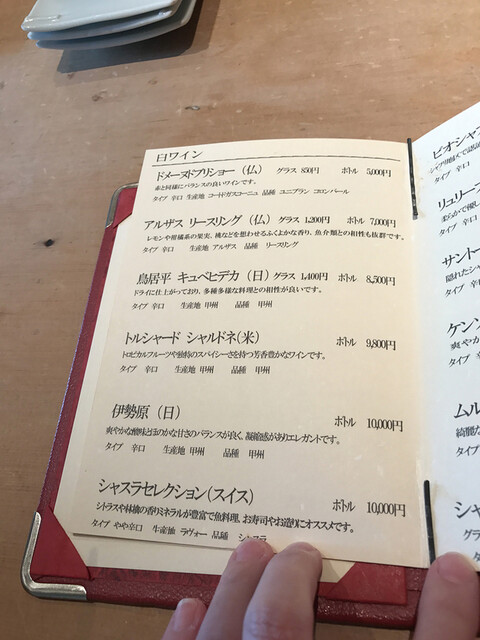 白ワイン
ドメーヌドプリショー（仏） グラス 850円 ボトル 5,000円
赤と同様にバランスの良いワインです。
タイプ 辛口 生産地 コードガスコーニュ 品種 ユニブラン コロンバール
アルザス リースリング（仏） グラス 1,200円 ボトル 7,000円
レモンや柑橘系の果実、桃などを思わせるふくよかな香り、魚介類との相性も抜群です。
タイプ 辛口 生産地 アルザス 品種 リースリング
鳥居平 キュベヒデカ（日） グラス 1,400円 ボトル 8,500円
ドライに仕上がっており、多種多様な料理との相性が良いです。
タイプ 辛口 生産地 甲州 品種 甲州
トルシャード シャルドネ(米) ボトル 9,800円
トロピカルフルーツや独特のスパイシーさを持つ芳香豊かなワインです。
タイプ 辛口 生産地 甲州 品種 甲州
伊勢原（日） ボトル 10,000円
爽やかな酸味とほのかな甘さのバランスが良く、凝縮感がありエレガントです。
タイプ 辛口 生産地 甲州 品種 甲州
シャスラセレクション(スイス) ボトル 10,000円
シトラスや林檎の香りミネラルが豊富で魚料理、お寿司やお造りにオススメです。
タイプ やや辛口 生産地 ラヴォー 品種 シャスラ
ビオシャ
タイプ 辛
リュリー
柔らかで優し
タイプ 辛口
サントー
隠れたシャ
タイプ 辛
ケンゾ
爽やか
タイプ
ムル
綺麗な
タイプ
シャ
グラ